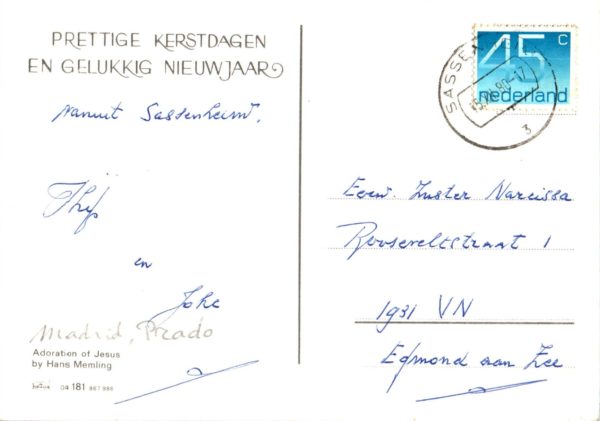 PRETTIGE KERSTDAGEN
EN GELUKKIG NIEUWJAAR
vanuit Sassenheim.
Thijs
en
Joke
Madrid, Prado
Adoration of Jesus
by Hans Memling
04 181 867 986
45 c
nederland
SASSEN
80-17
3
Eerw. Zuster Narcissa
Rooseveltstraat 1
1931 VN
Egmond aan Zee